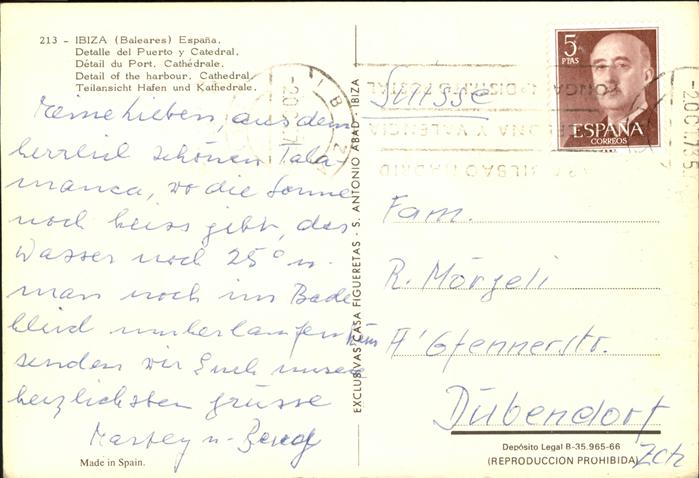 213 - IBIZA (Baleares) España.
Detalle del Puerto y Catedral.
Détail du Port. Cathédrale.
Detail of the harbour. Cathedral.
Teilansicht Hafen und Kathedrale.
Meine Lieben, aus dem
herrlich schönen Tala-
manca, wo die Sonne
noch heiss gibt, das
Wasser noch 25° u.
man noch im Bade
kleid umherlaufen kann
senden wir Euch unsere
herzlichsten grüsse
u.
Made in Spain.
EXCLUSIVAS CASA FIGUERETAS - S. ANTONIO ABAD - IBIZA
Suisse
5
PTAS
ESPAÑA
CORREOS
BILBAO MADRID
Y VALENCIA
DISTRITO POSTAL
Fam.
R. Mörgeli
A'Gfennerstr.
Dübendorf
Zch
Depósito Legal B-35.965-66
(REPRODUCCION PROHIBIDA)